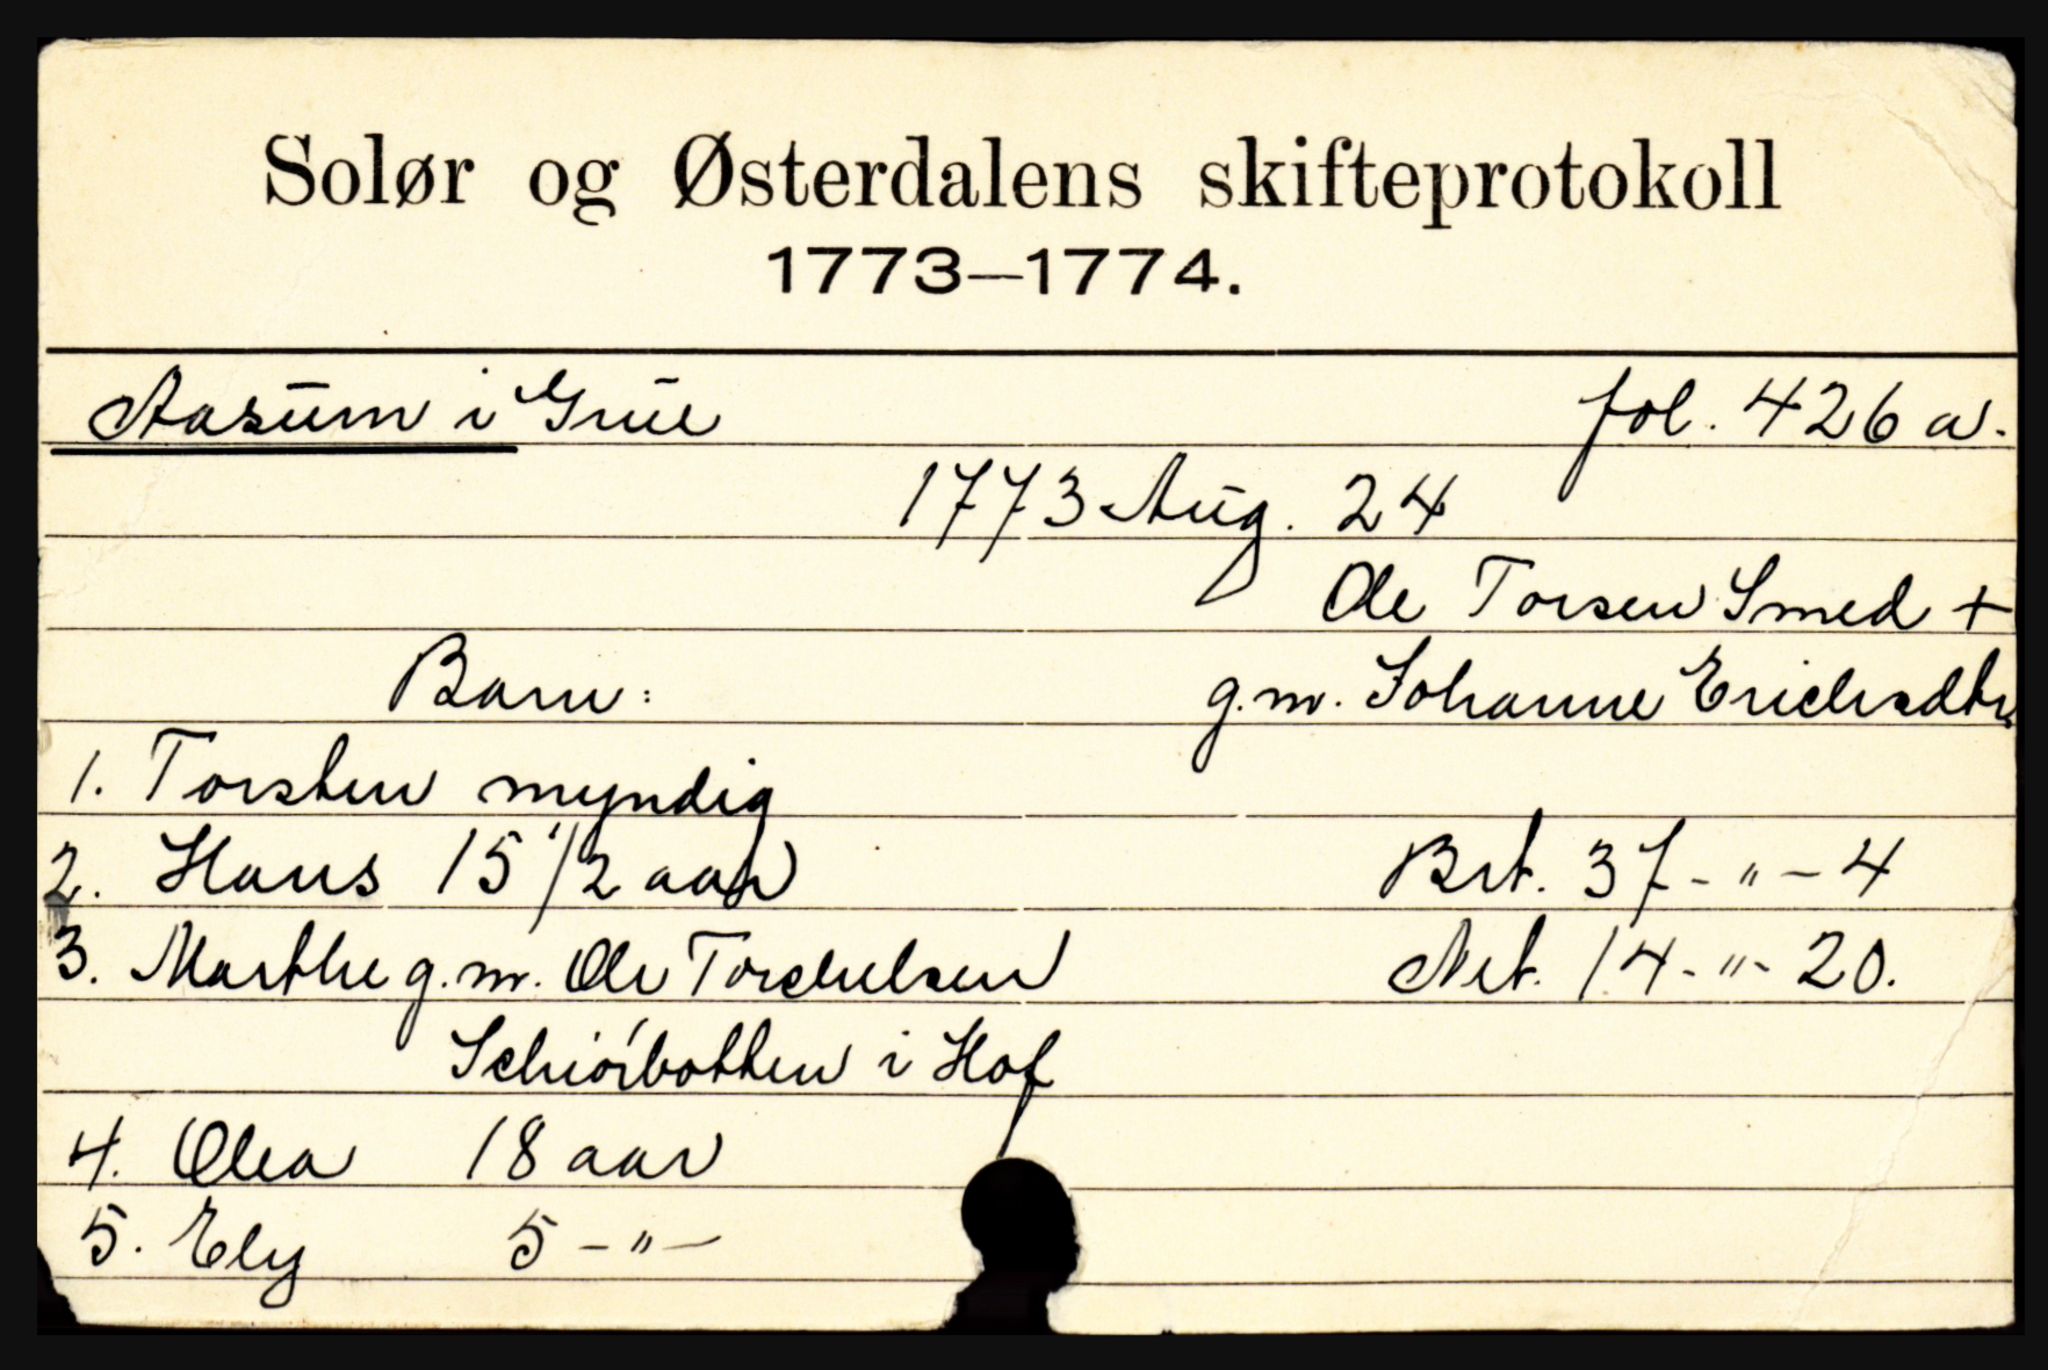 Solør og Østerdalens skifteprotokoll
1773—1774.
Aasum i Grue fol. 426 a.
1773 Aug. 24
Ole Torsen Smed +
Barn: g.m. Johanne Erichsdtr.
1. Torsten myndig
2. Hans 15 1/2 aar Brt. 37 - " - 4
3. Marthe g.m. Ole Torchelsen Net. 14 - " - 20.
Schiörbotten i Hof
4. Olea 18 aar
5. Ely 5 - " -